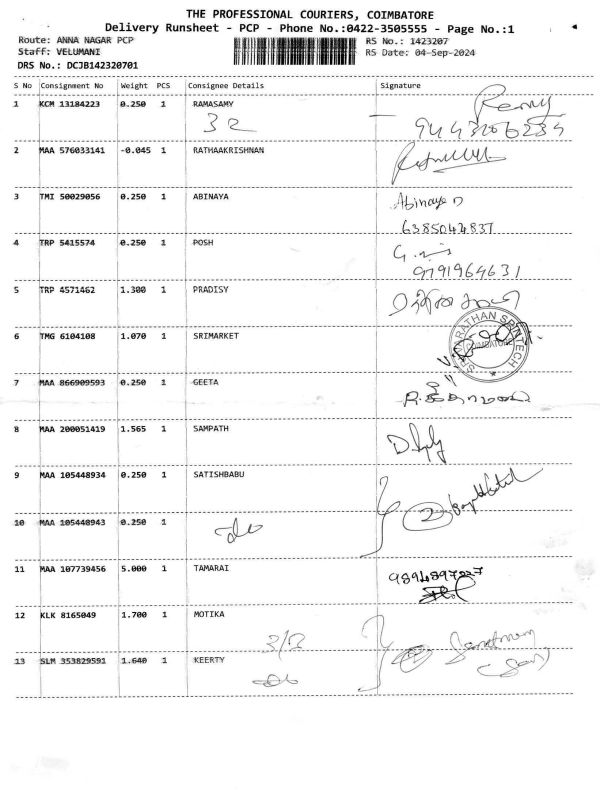 THE PROFESSIONAL COURIERS, COIMBATORE
Delivery Runsheet - PCP - Phone No.:0422-3505555 - Page No.:1
Route: ANNA NAGAR PCP RS No.: 1423207
Staff: VELUMANI RS Date: 04-Sep-2024
DRS No.: DCJB142320701
S No Consignment No Weight PCS Consignee Details Signature
1 KCM 13184223 0.250 1 RAMASAMY
2 MAA 576033141 -0.045 1 RATHAAKRISHNAN
3 TMI 50029056 0.250 1 ABINAYA Abinaya
6385044837
4 TRP 5415574 0.250 1 POSH
9791964631
5 TRP 4571462 1.300 1 PRADISY
6 TMG 6104108 1.070 1 SRIMARKET
COIMBATORE
7 MAA 866909593 0.250 1 GEETA
8 MAA 200051419 1.565 1 SAMPATH
9 MAA 105448934 0.250 1 SATISHBABU
10 MAA 105448943 0.250 1
11 MAA 107739456 5.000 1 TAMARAI
12 KLK 8165049 1.700 1 MOTIKA
13 SLM 353829591 1.640 1 KEERTY